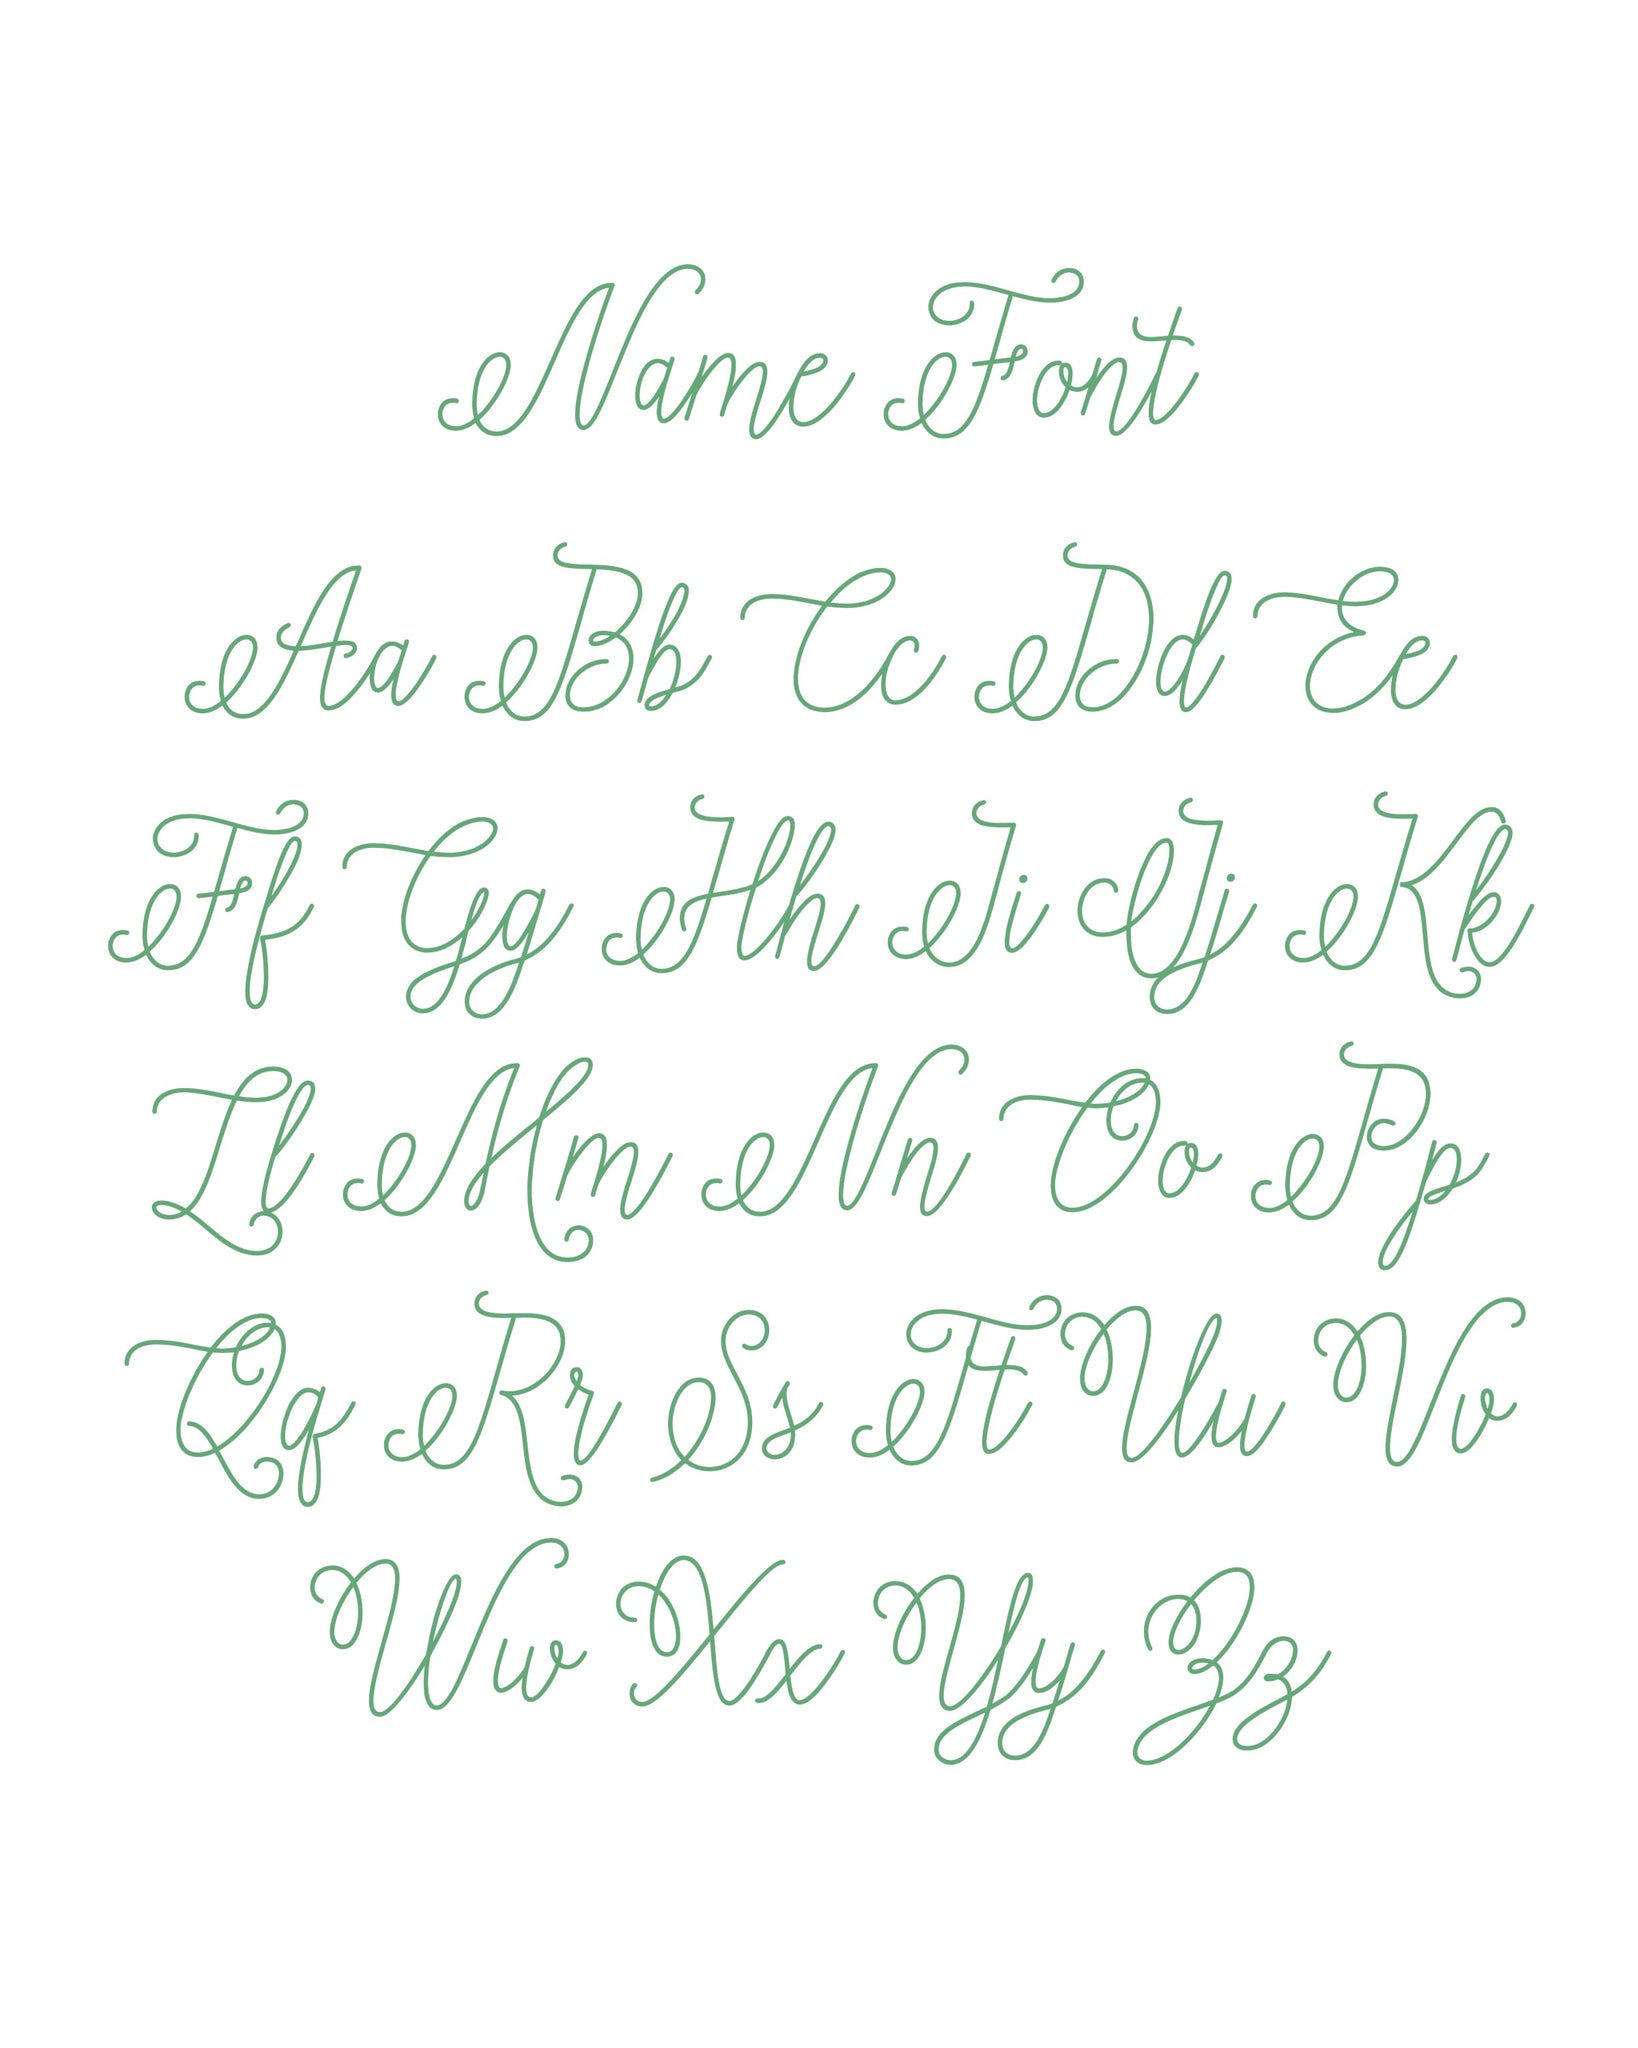 Name Font
Aa Bb Cc Dd Ee
Ff Gg Hh Ii Jj Kk
Ll Mm Nn Oo Pp
Qq Rr Ss Tt Uu Vv
Ww Xx Yy Zz